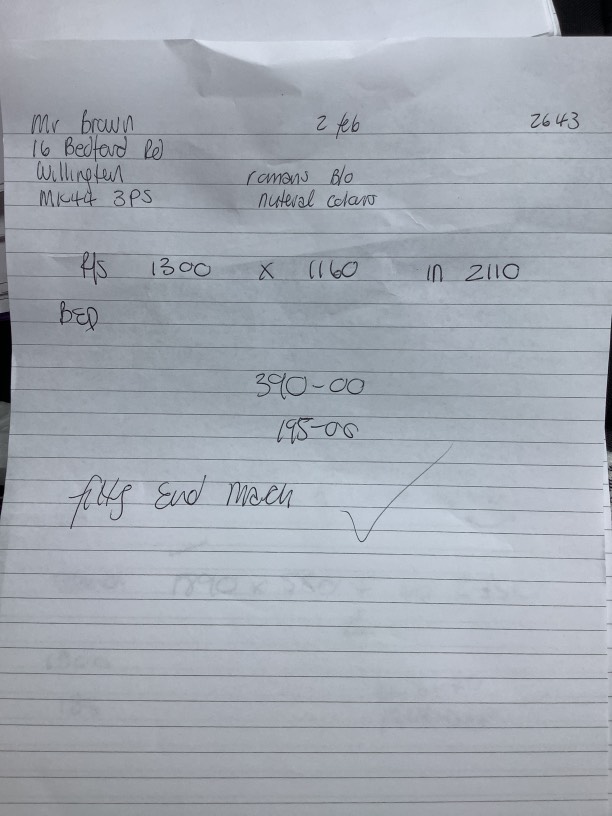 Mr Brown 2 feb 2643
16 Bedford Rd
Willington
MK44 3PS
romans B/o
nuteral colours
R/S 1300 x 1160 in 2110
BED
390-00
195-00
fitg End March